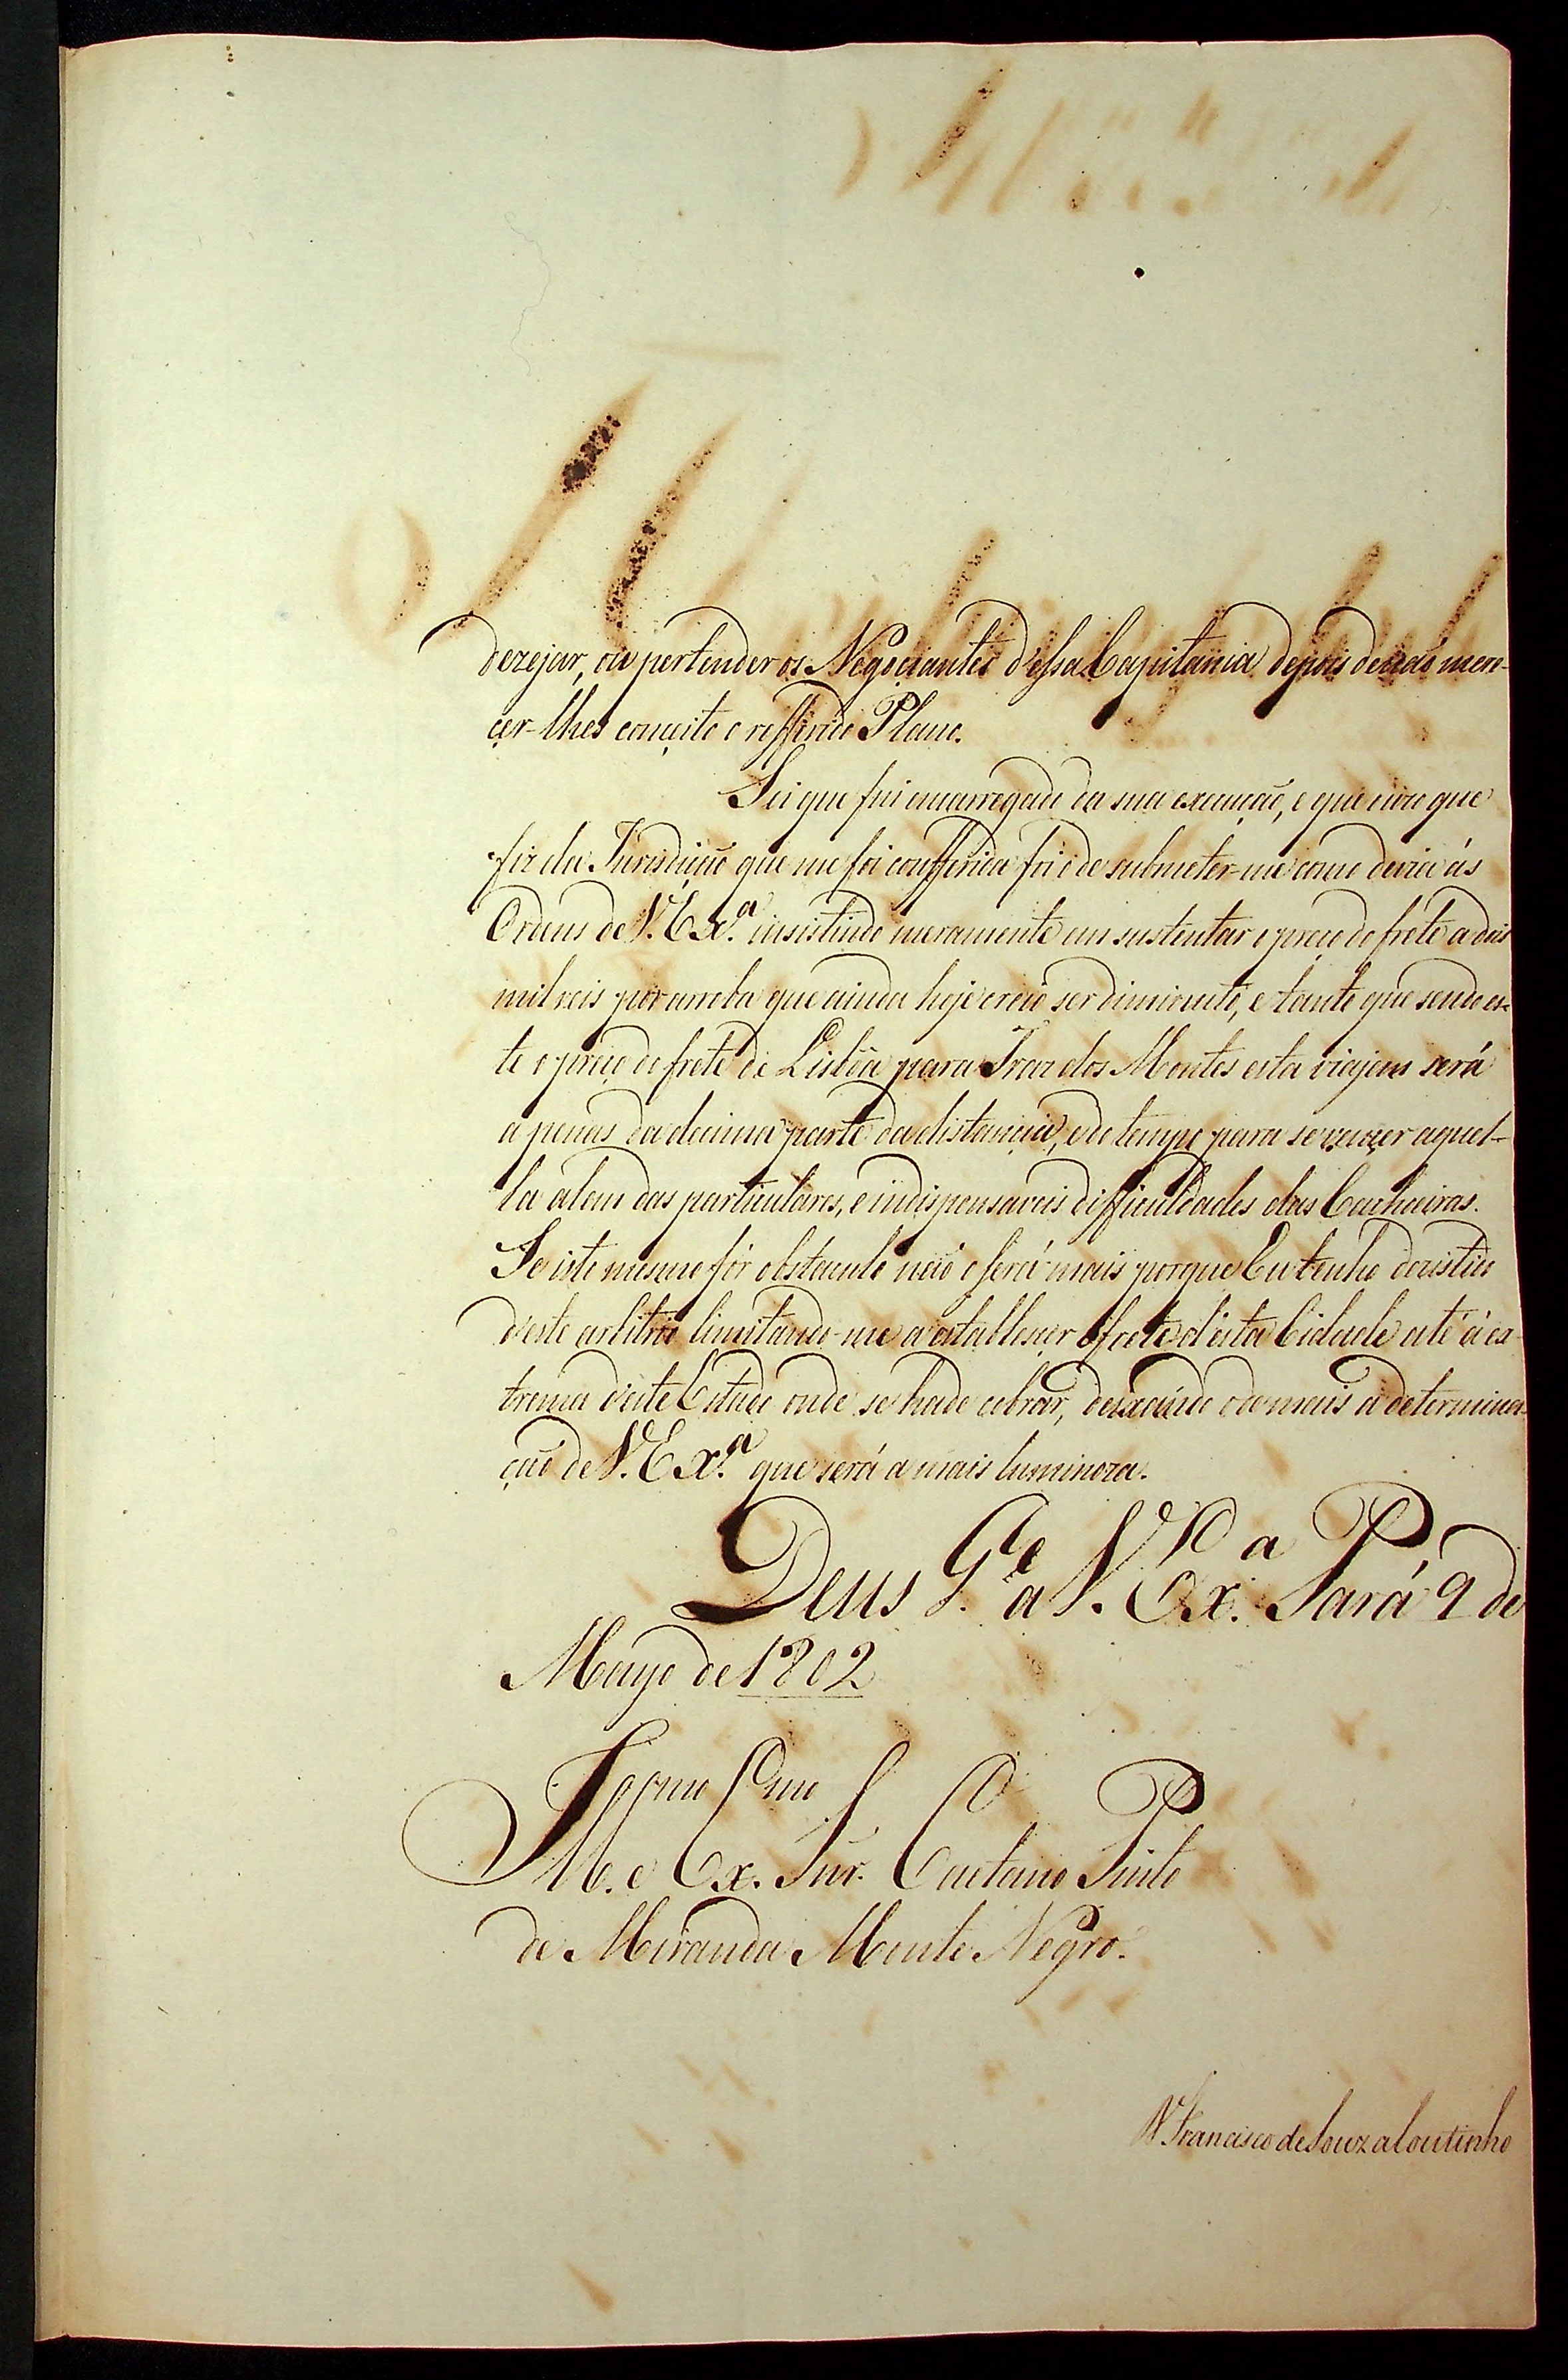 dezejar, ou pertender os Negociantes d'essa Capitania depois de não mere-
cer-lhes conceito o refferido Plano.
Sei que fui encarregado da sua execução, e que o uzo que
fiz da Jurisdição que me foi confferida foi o de submeter-me como devia ás
Ordens de V. Ex.ª insistindo meramente em sustentar o preço do frete a dois
mil reis por arroba que ainda hoje creio ser diminuto, e tanto que sendo es-
te o preço do frete de Lisbôa para Traz dos Montes esta viajem será
a penas da decima parte da distancia, e do tempo para se vencer aquel-
la alem das particulares, e indispensaveis difficuldades das Cachoeiras.
Se isto mesmo fôr obstaculo não o será mais porque Eu tenho dezistido
d'este arbitrio limitando-me a establlecer o frete d'esta Cidade até á es-
trema d'este Estado onde se hade cobrar, deixando o de mais á determina-
ção de V. Ex.ª que será a mais luminoza.
Deus G.de a V. Ex.ª Pará 9 de
Mayo de 1802
Ill.mo e Ex.mo Snr. Caetano Pinto
de Miranda Monte Negro.
D. Francisco de Souza Coutinho